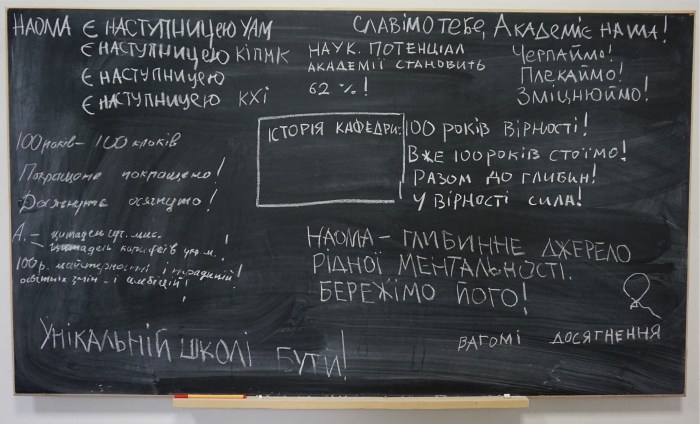 НАОМА Є НАСТУПНИЦЕЮ УАМ
Є НАСТУПНИЦЕЮ КІПМК
Є НАСТУПНИЦЕЮ
Є НАСТУПНИЦЕЮ КХІ
НАУК. ПОТЕНЦІАЛ
АКАДЕМІЇ СТАНОВИТЬ
62 %!
СЛАВІМО ТЕБЕ, АКАДЕМІЄ НАША!
ЧЕРПАЙМО!
ПЛЕКАЙМО!
ЗМІЦНЮЙМО!
100 років – 100 кроків
Покращоте покращено!
Досягнуте осягнуто!
А. – цитадель
цитадель корифеїв укр. м. !
100 р. майстерності і традицій!
освітніх змін – і амбіцій!
ІСТОРІЯ КАФЕДРИ:
100 РОКІВ ВІРНОСТІ!
ВЖЕ 100 РОКІВ СТОЇМО!
РАЗОМ ДО ГЛИБИН!
У ВІРНОСТІ СИЛА!
НАОМА – ГЛИБИННЕ ДЖЕРЕЛО
РІДНОЇ МЕНТАЛЬНОСТІ.
БЕРЕЖІМО ЙОГО!
УНІКАЛЬНІЙ ШКОЛІ БУТИ!
ВАГОМІ ДОСЯГНЕННЯ